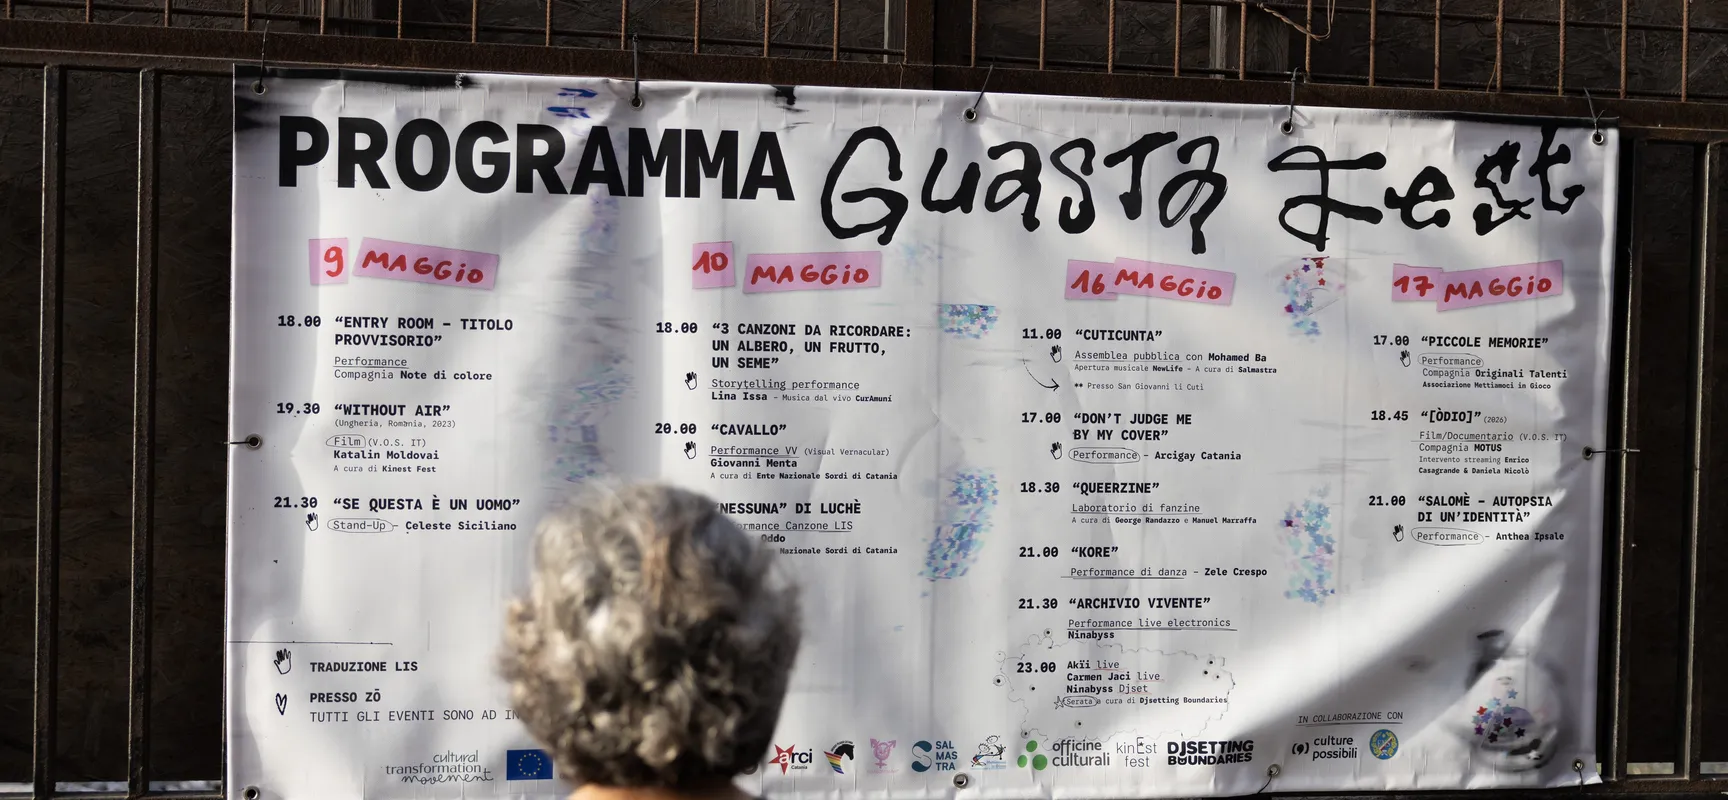 PROGRAMMA Guasta Fest
9 MAGGIO
18.00 “ENTRY ROOM – TITOLO
PROVVISORIO”
Performance
Compagnia Note di colore
19.30 “WITHOUT AIR”
(Ungheria, Romania, 2023)
Film (V.O.S. IT)
Katalin Moldovai
A cura di Kinest Fest
21.30 “SE QUESTA È UN UOMO”
Stand-Up – Celeste Siciliano
10 MAGGIO
18.00 “3 CANZONI DA RICORDARE:
UN ALBERO, UN FRUTTO,
UN SEME”
Storytelling performance
Lina Issa – Musica dal vivo CurAmuní
20.00 “CAVALLO”
Performance VV (Visual Vernacular)
Giovanni Menta
A cura di Ente Nazionale Sordi di Catania
NESSUNA” DI LUCHÈ
Canzone LIS
Oddo
Nazionale Sordi di Catania
16 MAGGIO
11.00 “CUTICUNTA”
Assemblea pubblica con Mohamed Ba
Apertura musicale NewLife – A cura di Salmastra
** Presso San Giovanni li Cuti
17.00 “DON’T JUDGE ME
BY MY COVER”
Performance – Arcigay Catania
18.30 “QUEERZINE”
Laboratorio di fanzine
A cura di George Randazzo e Manuel Marraffa
21.00 “KORE”
Performance di danza – Zele Crespo
21.30 “ARCHIVIO VIVENTE”
Performance live electronics
Ninabyss
23.00 Akïi live
Carmen Jaci live
Ninabyss Djset
Serata a cura di Djsetting Boundaries
17 MAGGIO
17.00 “PICCOLE MEMORIE”
Performance
Compagnia Originali Talenti
Associazione Mettiamoci in Gioco
18.45 “[ÒDIO]” (2026)
Film/Documentario (V.O.S. IT)
Compagnia MOTUS
Intervento streaming Enrico
Casagrande & Daniela Nicolò
21.00 “SALOMÈ – AUTOPSIA
DI UN’IDENTITÀ”
Performance – Anthea Ipsale
TRADUZIONE LIS
PRESSO ZŌ
TUTTI GLI EVENTI SONO AD
IN COLLABORAZIONE CON
cultural
transformation
movement
arci
Catania
SAL
MAS
TRA
officine
culturali
kinEst
fest
DJSETTING
BOUNDARIES
culture
possibili